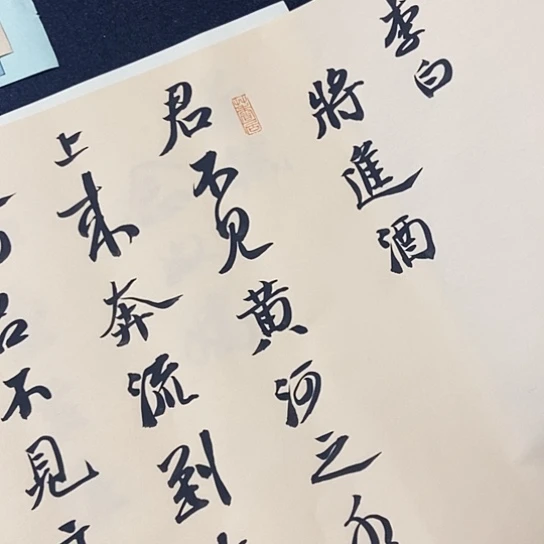 李白
將進酒
君不見黄河之水
上来奔流到
君不見